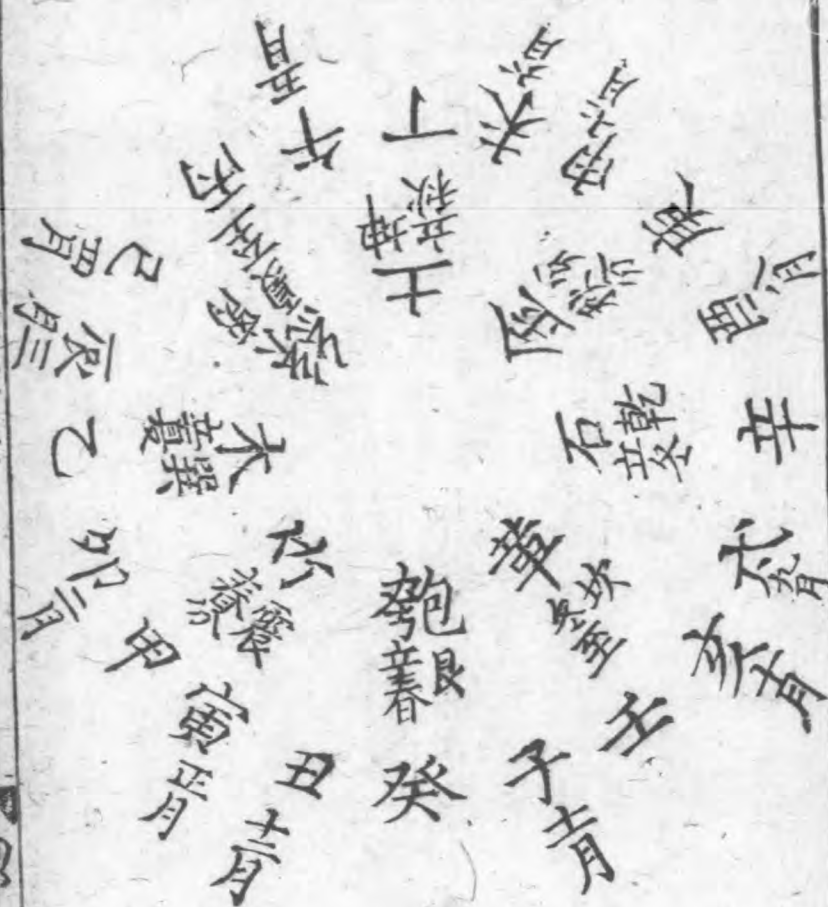 子十一月
癸
丑十二月
寅正月
甲
卯二月
乙
辰三月
巳四月
丙
午五月
丁
未六月
申七月
庚
酉八月
辛
戌九月
亥十月
壬
革
坎
冬至
匏
艮
立春
竹
震
春分
木
巽
立夏
絲
離
夏至
土
坤
立秋
金
兌
秋分
石
乾
立冬